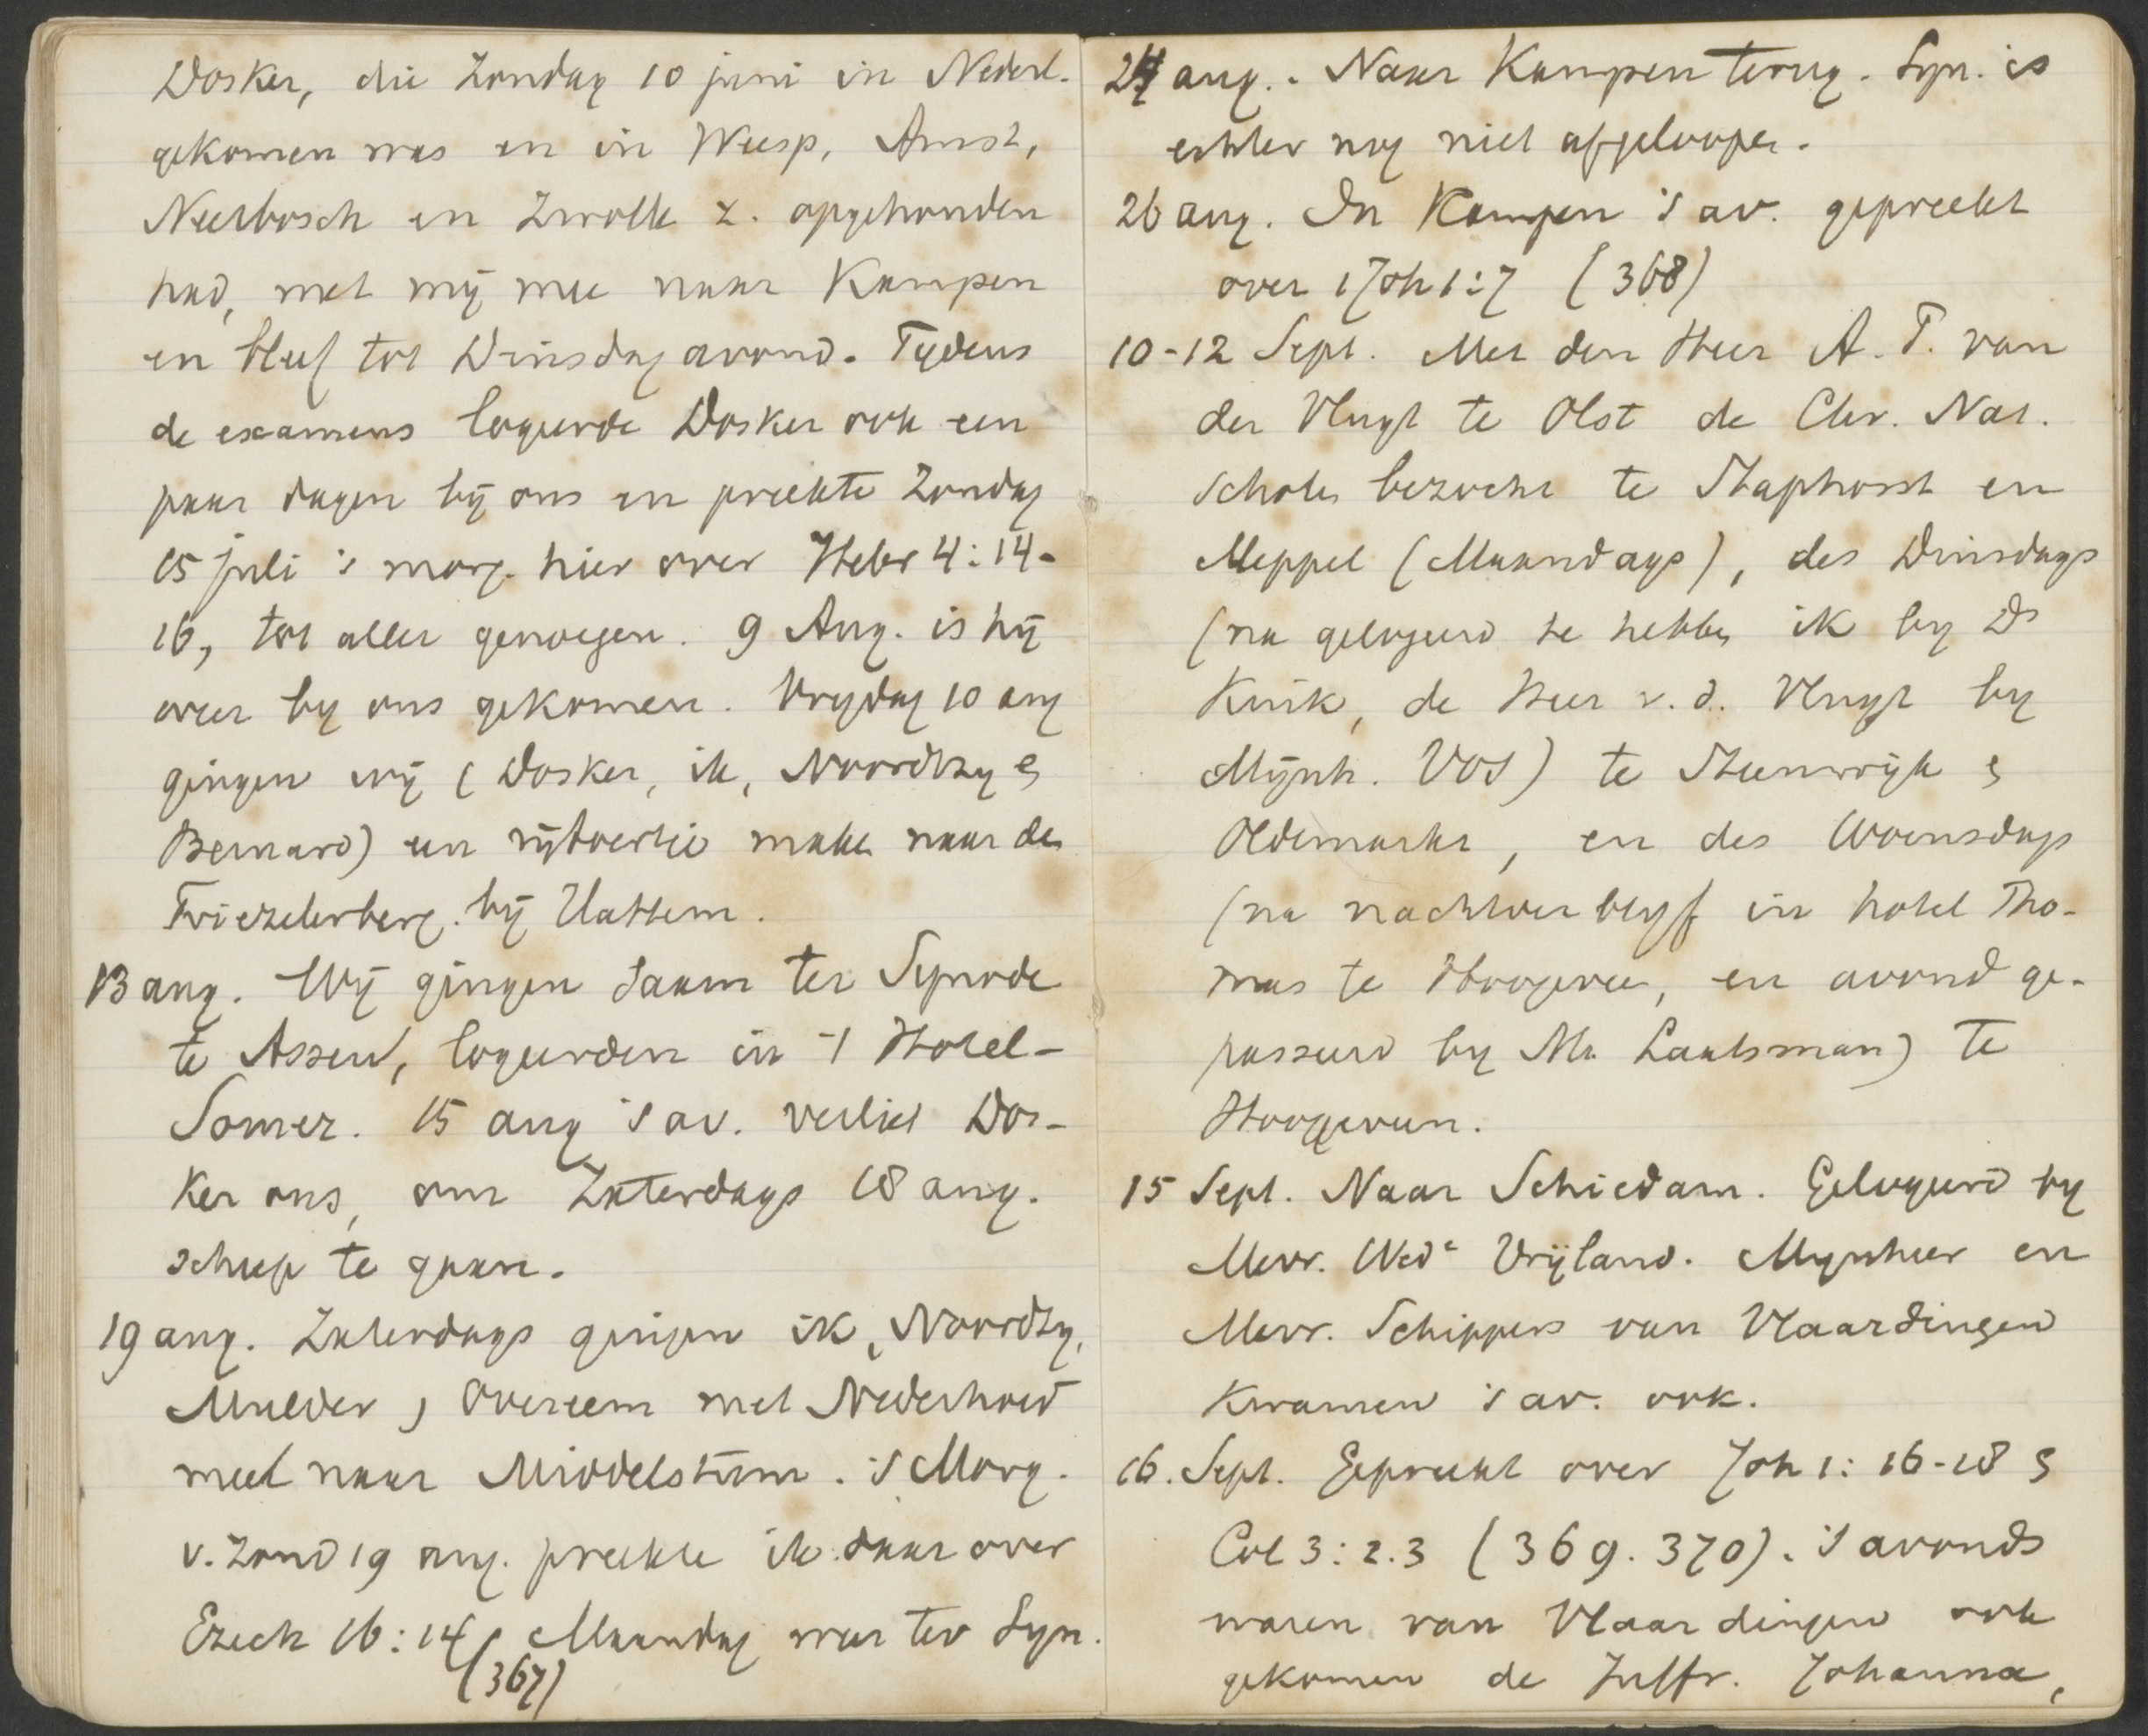 Dosker, die Zondag 10 juni in Nederl.
gekomen was en in Weesp, Amst,
Neerbosch en Zwolle z. opgehouden
had, met mij mee naar Kampen
en bleef tot Dinsdag avond. Tydens
de examens logeerde Dosker ook een
paar dagen bij ons en preekte Zondag
15 juli 's morg. hier over Hebr 4:14-
16, tot aller genoegen. 9 Aug. is hij
weer by ons gekomen. Vrydag 10 aug
gingen wij (Dosker, ik, Noordtzy en
Bernard) een rijtoertje maken naar den
Friezelerberg. bij Hattem.
13 aug. Wij gingen saam ter Synode
te Assen, logeerden in 't Hotel-
Somer. 15 aug 's av. verliet Dos-
ker ons, om Zaterdags 18 aug.
scheep te gaan.
19 aug. Zaterdags gingen ik, Noordtzy,
Mulder, Overeem met Nederhoed
meet naar Middelstum. 's Morg.
v. Zond 19 aug. preekte ik daar over
Ezech 16:14 (367) Maandag weer ter Syn.
24 aug. Naar Kampen terug. Syn. is
echter nog niet afgeloopen.
26 aug. In Kampen 's av. gepreekt
over 1 Joh 1:7 (368)
10-12 Sept. Met den Heer A. T. van
der Vlugt te Olst de Chr. Nat.
Scholen bezocht te Staphorst en
Meppel (Maandags), des Dinsdags
(na gelogeerd te hebben ik by Ds
Kuik, de Heer v. d. Vlugt by
Mijnh. Vos) te Steenwijk en
Oldemarkt, en des Woensdags
(na nachtverblyf in hotel Tho-
mas te Hoogeveen, en avond ge-
passeerd by Mr. Laatsman) te
Hoogeveen.
15 Sept. Naar Schiedam. Gelogeerd by
Mevr. Wede Vrijland. Mynheer en
Mevr. Schippers van Vlaardingen
kwamen 's av. ook.
16. Sept. Gepreekt over Joh 1: 16-18 en
Col 3: 2.3 (369. 370). 's avonds
waren van Vlaardingen ook
gekomen de Juffr. Johanna,